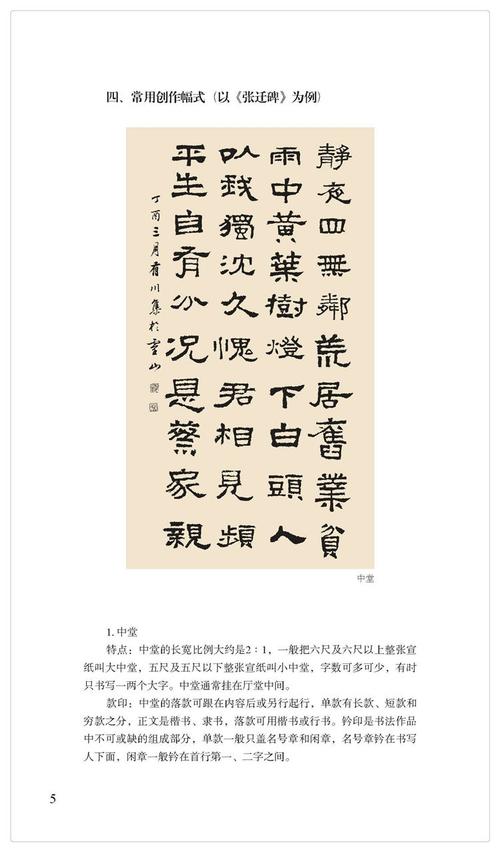 四、常用创作幅式（以《张迁碑》为例）
静夜四無鄰荒居舊業貧
雨中黄葉樹燈下白頭人
以我獨沈久愧君相見頻
平生自有分况是蔡家親
丁酉三月看川集於雪山
中堂
1. 中堂
特点：中堂的长宽比例大约是2∶1，一般把六尺及六尺以上整张宣
纸叫大中堂，五尺及五尺以下整张宣纸叫小中堂，字数可多可少，有时
只书写一两个大字。中堂通常挂在厅堂中间。
款印：中堂的落款可跟在内容后或另行起行，单款有长款、短款和
穷款之分，正文是楷书、隶书，落款可用楷书或行书。钤印是书法作品
中不可或缺的组成部分，单款一般只盖名号章和闲章，名号章钤在书写
人下面，闲章一般钤在首行第一、二字之间。
5